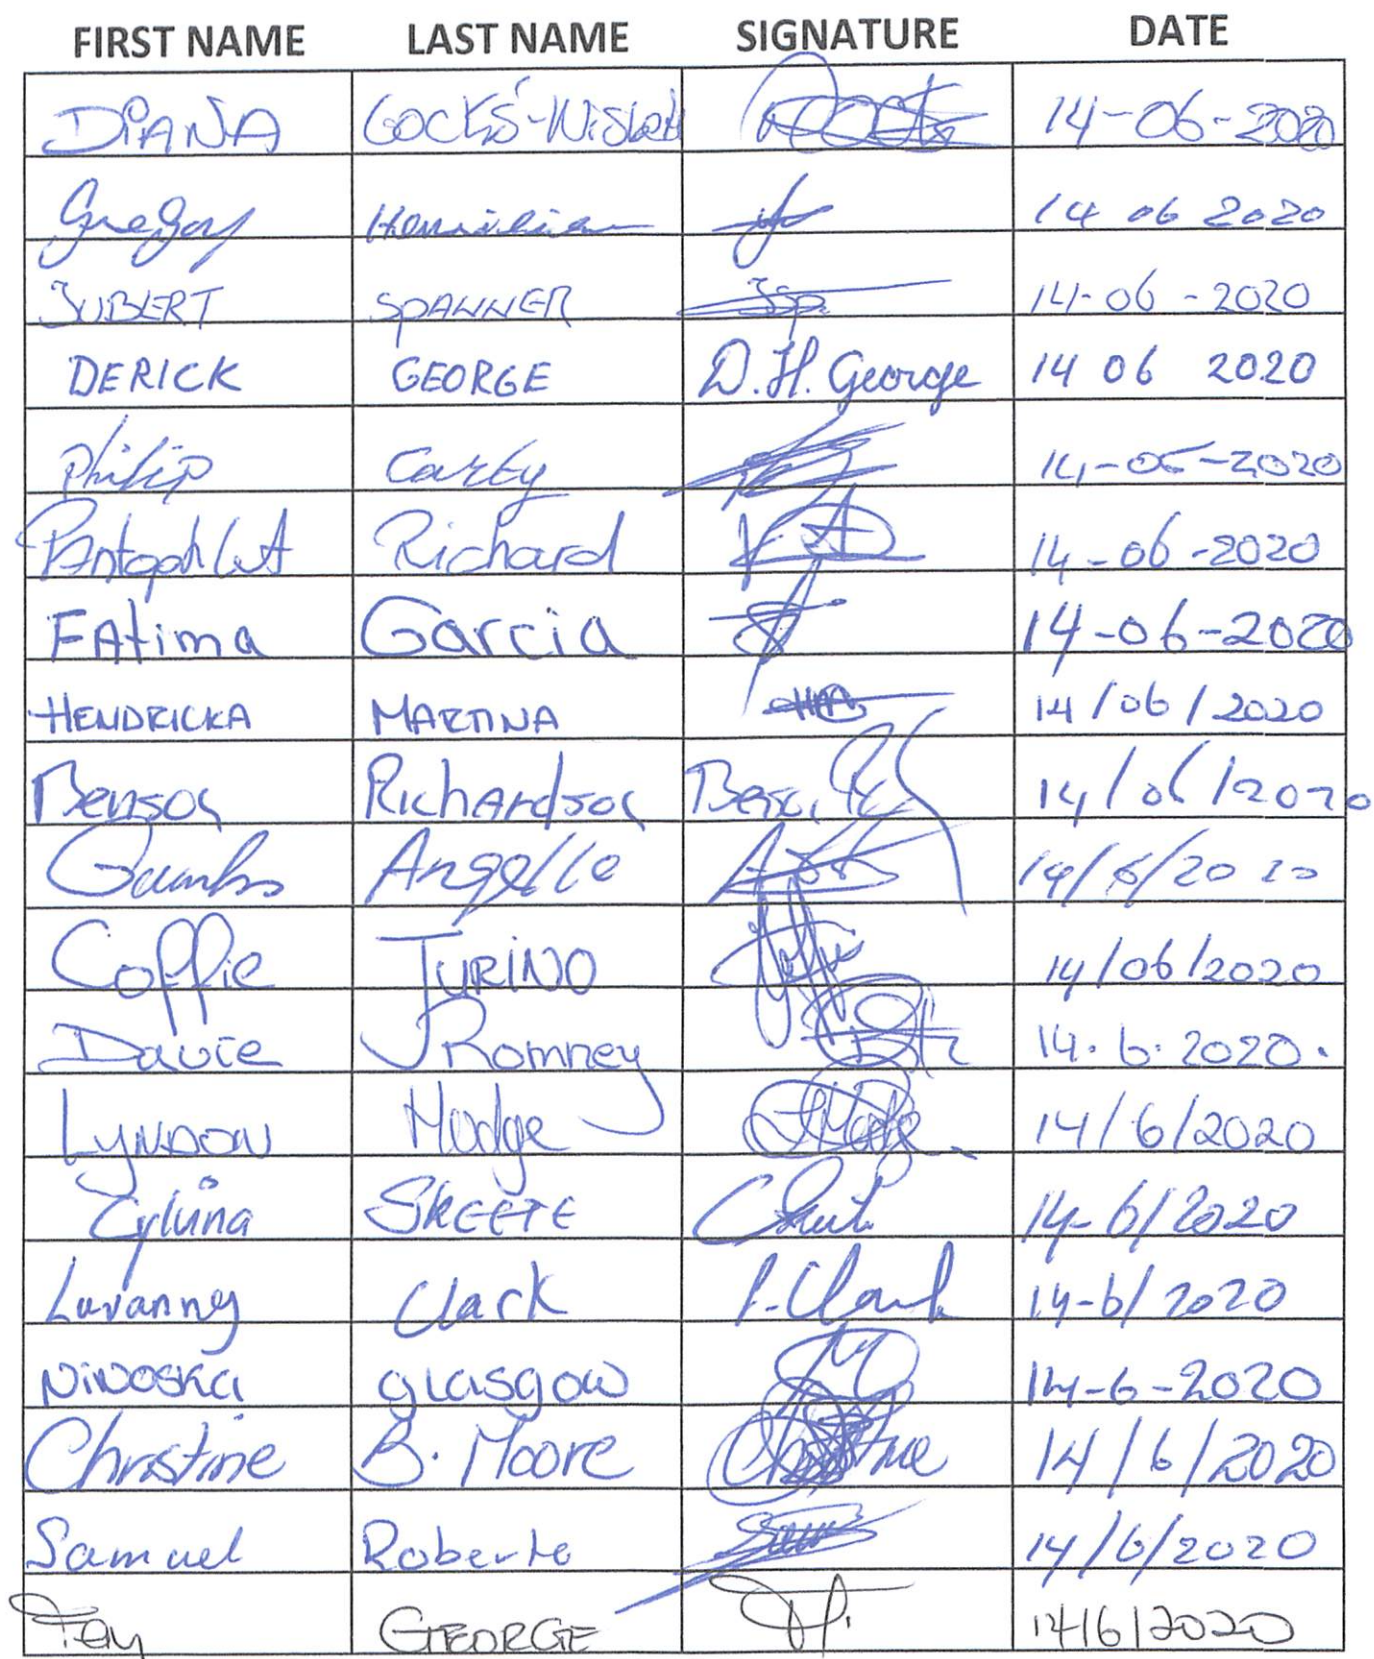 FIRST NAME LAST NAME SIGNATURE DATE
DIANA 14-06-2020
Gregory 14 06 2020
JUBERT SPANNER Jsp 14-06-2020
DERICK GEORGE D.H. George 14 06 2020
Philip Carty 14-06-2020
Richard 14-06-2020
FAtima Garcia 14-06-2020
HENDRICKA MARTINA 14/06/2020
Benson Richardson 14/06/2020
Gumbs Angelle 14/6/2020
Coffie JURINO 14/06/2020
Davie Romney 14.6.2020.
LYNDON Hodge 14/6/2020
SKEETE 14-6/2020
Luvanny Clark L. Clark 14-6/2020
NINOSKA glasgow 14-6-2020
Christine B. Moore Christine 14/6/2020
Samuel Roberts 14/6/2020
Fay GEORGE 14/6/2020